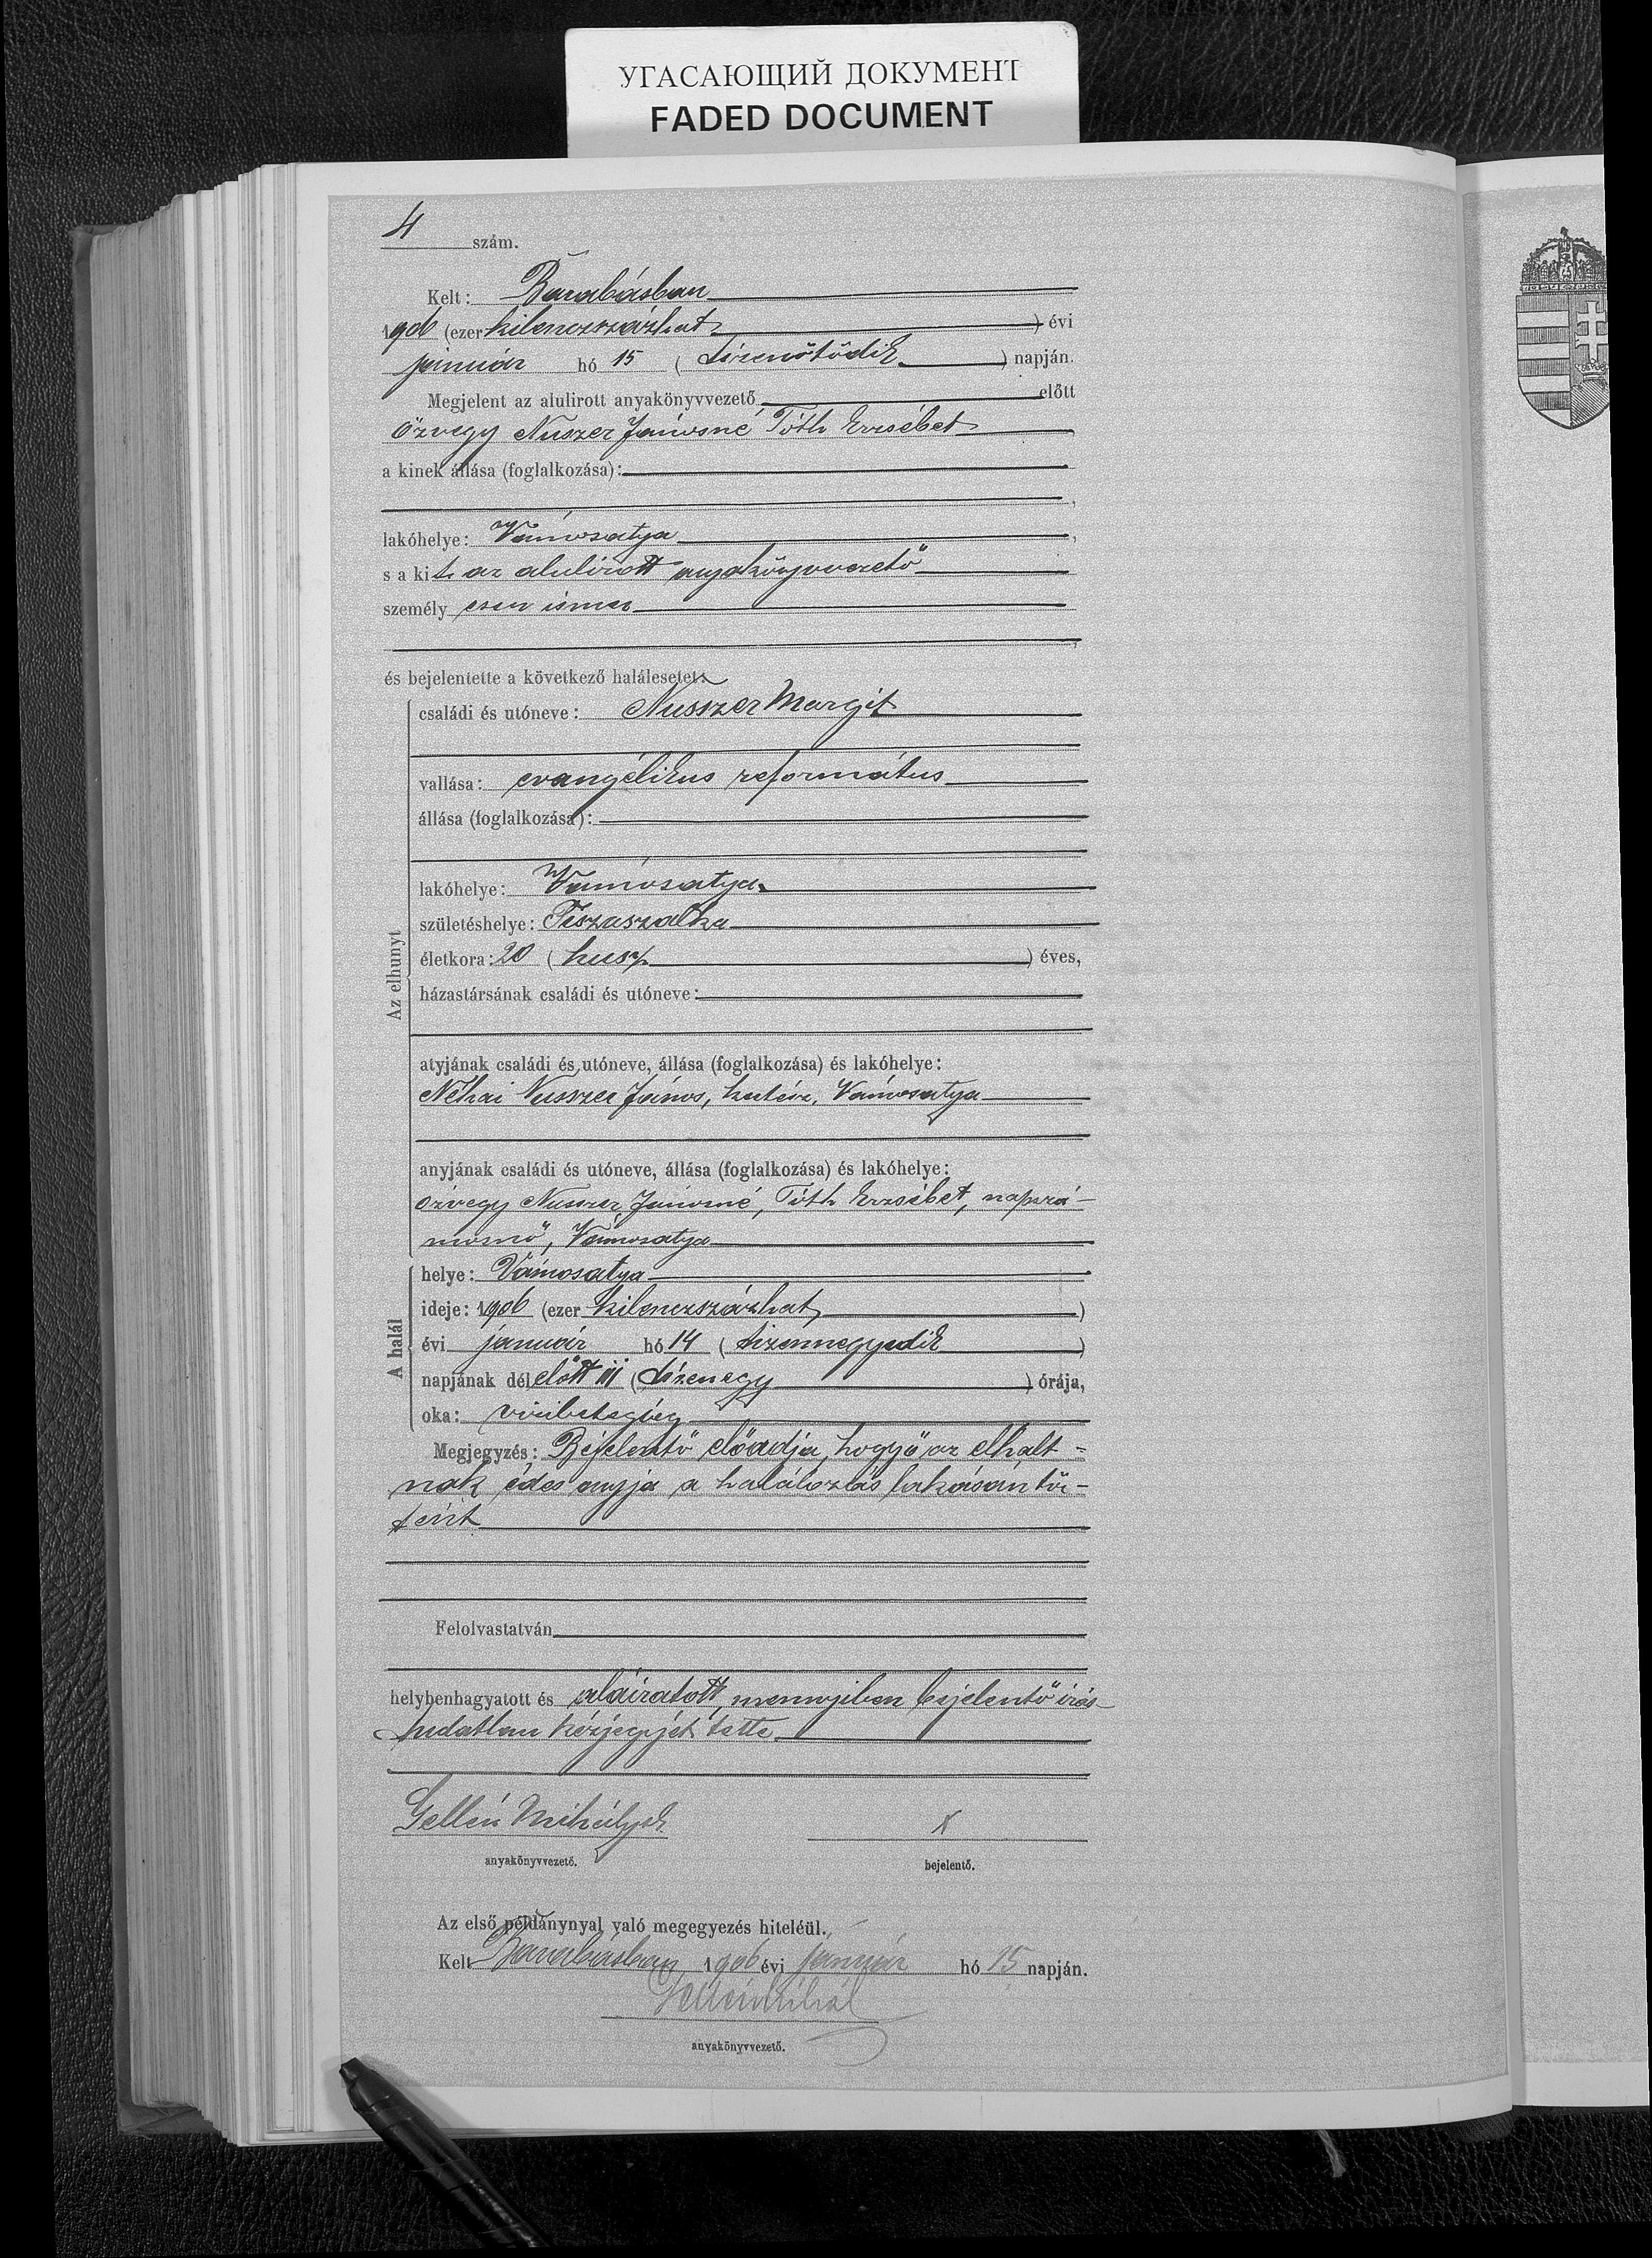 УГАСАЮЩИЙ ДОКУМЕНТ
FADED DOCUMENT
4 szám.
Kelt: Barabásban
1906 (ezer kilenczszázhat) évi
január hó 15 (tizenötödik) napján.
Megjelent az alulirott anyakönyvvezető előtt
özvegy Nuszer Jánosné Tóth Erzsébet
a kinek állása (foglalkozása):
lakóhelye: Vámosatya,
s a kit az alulirott anyakönyvvezető
személyesen ismer
és bejelentette a következő halálesetet:
Az elhunyt
családi és utóneve: Nusszer Margit
vallása: evangélikus református
állása (foglalkozása):
lakóhelye: Vámosatya
születéshelye: Tiszaszalka
életkora: 20 (husz) éves,
házastársának családi és utóneve:
atyjának családi és utóneve, állása (foglalkozása) és lakóhelye:
Néhai Nusszer János, Vámosatya
anyjának családi és utóneve, állása (foglalkozása) és lakóhelye:
özvegy Nusszer Jánosné, Tóth Erzsébet, napszá-
mosnő, Vámosatya
A halál
helye: Vámosatya
ideje: 1906 (ezer kilenczszázhat)
évi január hó 14 (tizennegyedik)
napjának délelőtt 11 (tizenegy) órája,
oka:
Megjegyzés: Bejelentő előadja, hogy ő az elhalt-
nak édes anyja a halálozás lakásán tör-
tént
Felolvastatván
helybenhagyatott és aláiratott, mennyiben bejelentő irás
tudatlan kézjegyét tette
Gellén Mihály
anyakönyvvezető.
x
bejelentő.
Az első példánynyal való megegyezés hiteléül.
Kelt Barabásban 1906 évi január hó 15 napján.
Gellén Mihál
anyakönyvvezető.